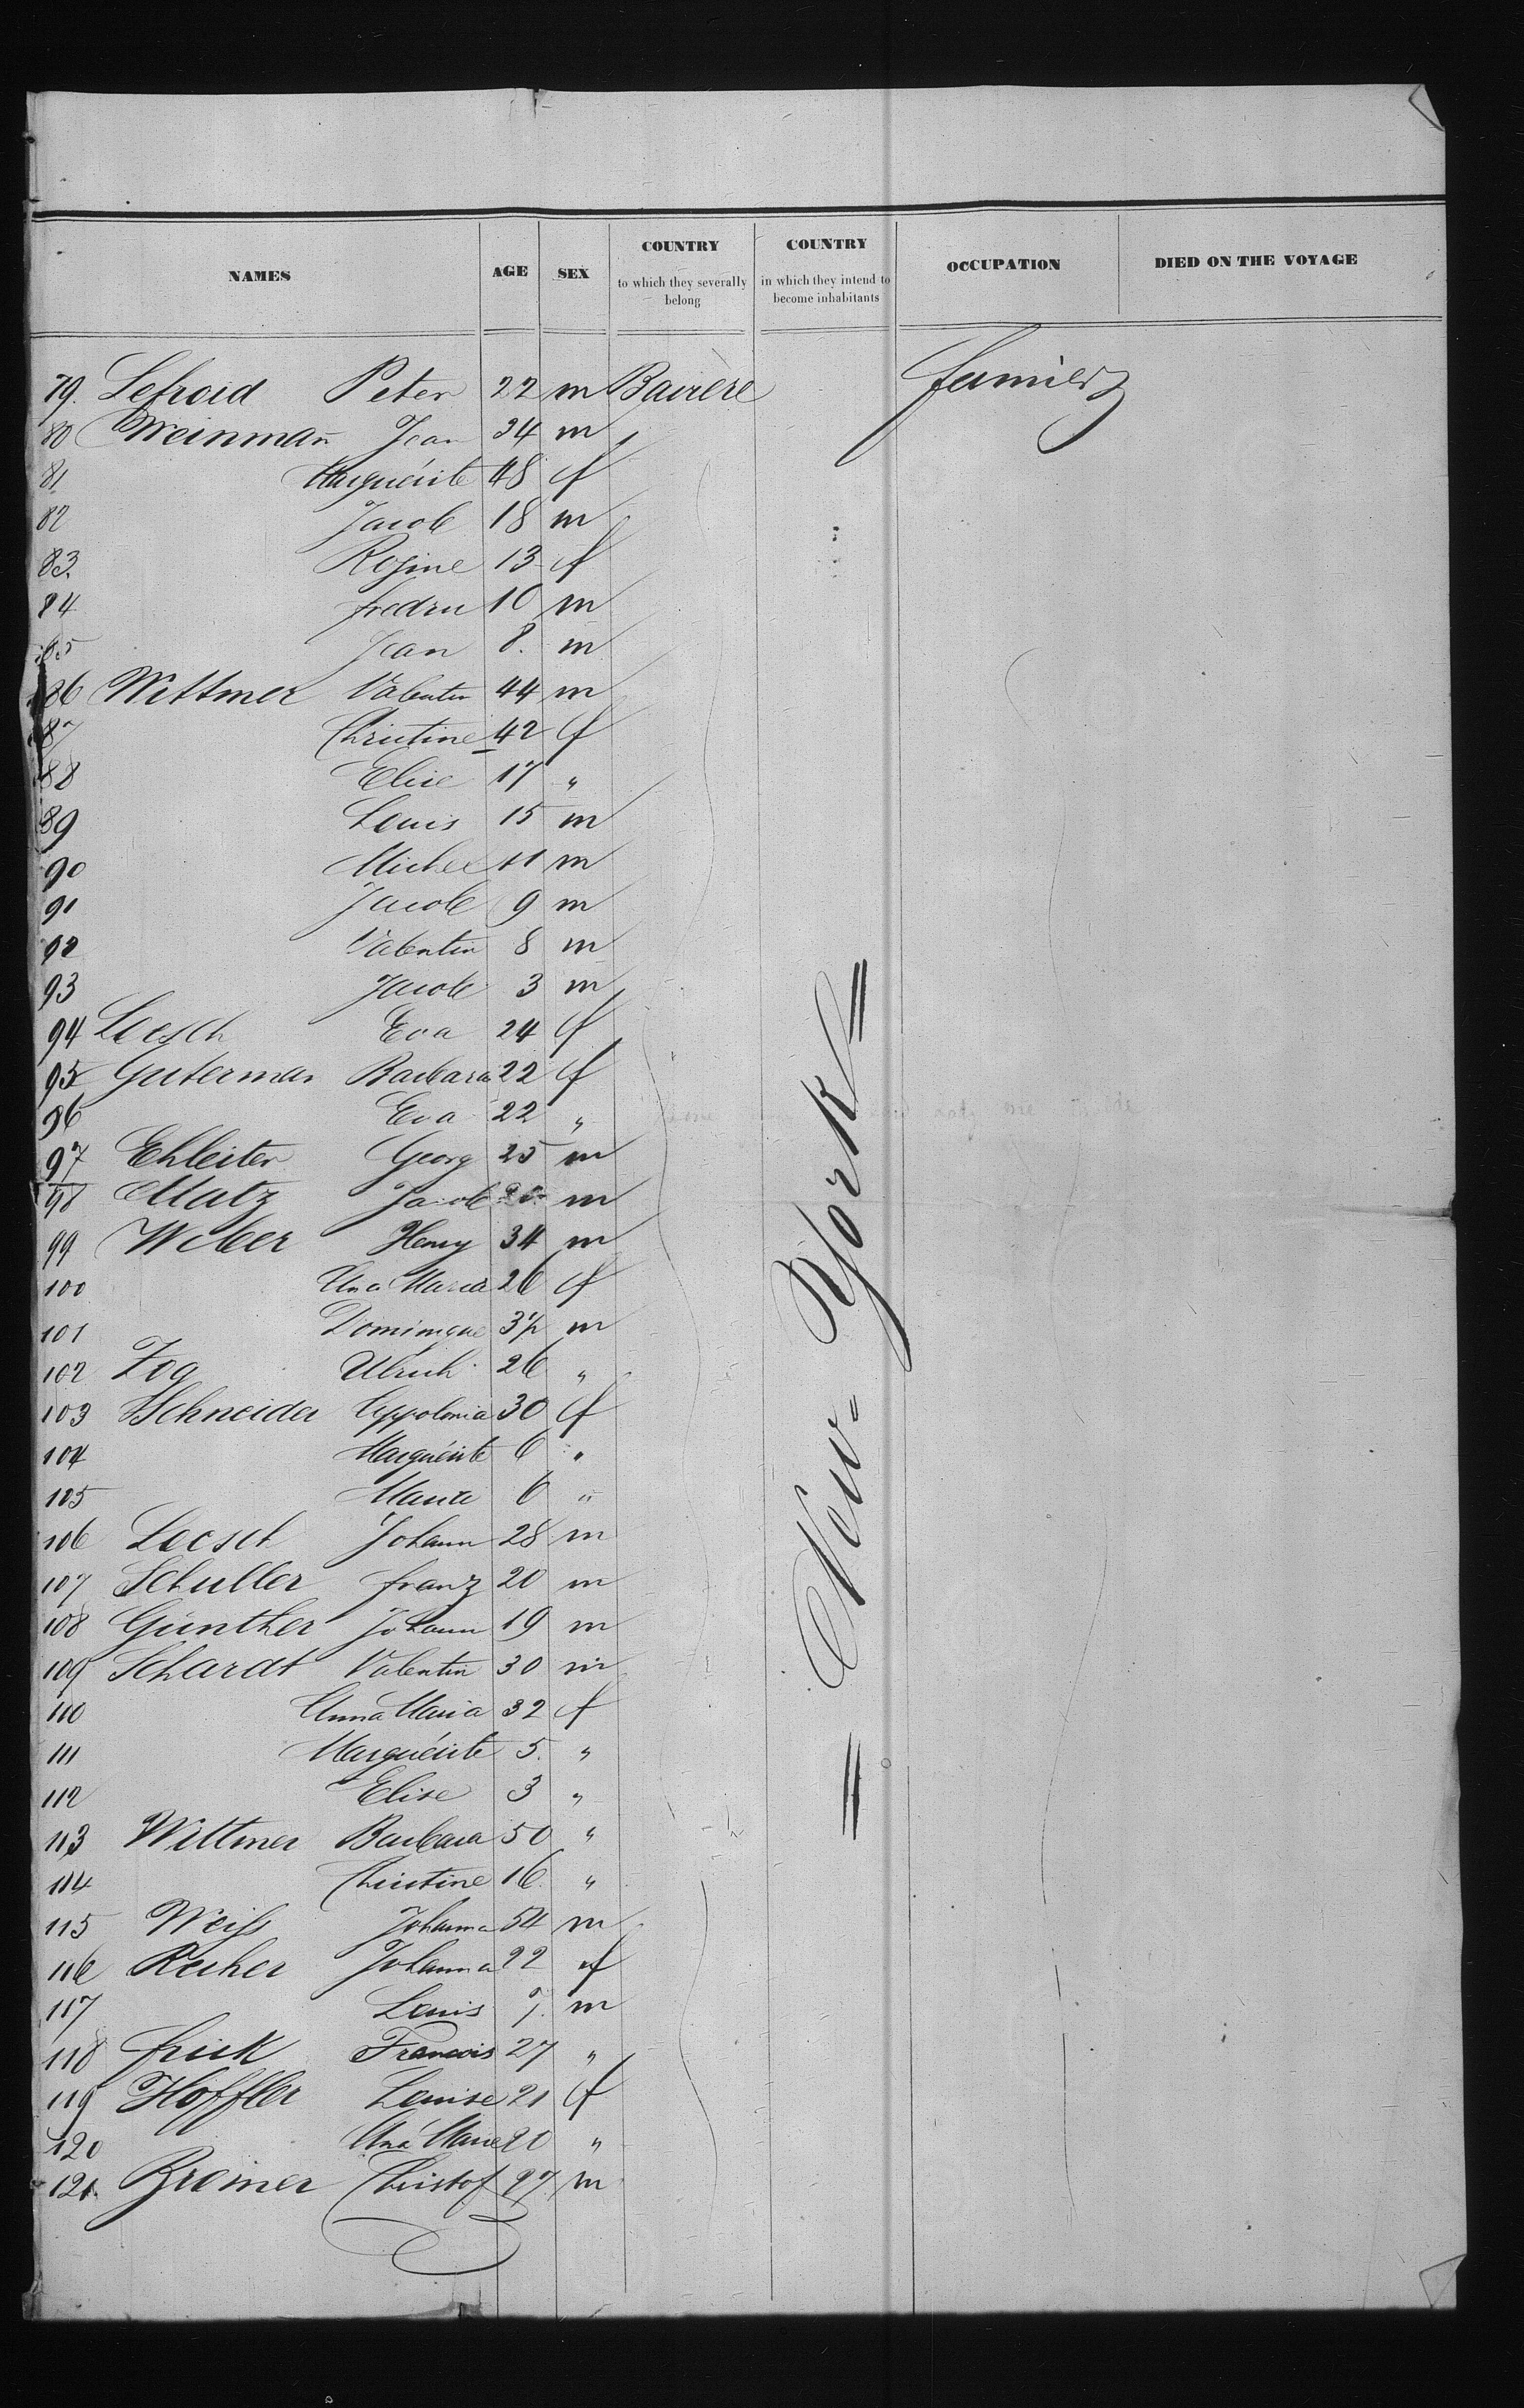 NAMES AGE SEX COUNTRY to which they severally belong COUNTRY in which they intend to become inhabitants OCCUPATION DIED ON THE VOYAGE
79. Lefroid Peter 22 m Baviere
80 Weinmañ Jean 34 m
81 Marguérite 48 f
82 Jacob 18 m
83. Rosine 13 f
84 10 m
85 Jean 8. m
86 Wittmer Valentin 44 m
87 Christine 42 f
88 Elise 17 "
89 Louis 15 m
90 Michel 11 m
91 Jacob 9 m
92 Valentin 8 m
93 Jacob 3 m
94 Loesch Eva 24 f
95 Guterman Barbara 22 f
96 Eva 22 "
97 Ehleiter Georg 25 m
98 Matz Jacob m
99 Weber Henry 34 m
100 Maria 26 f
101 Dominique 3½ m
102 Zog Ulrich 26 "
103 Schneider Appolonia 30 f
104 Marguérite 6 "
105 6 "
106 Loesch Johann 28 m
107 Schuller franz 20 m
108 Günther Johann 19 m
109 Schardt Valentin 30 m
110 Anna Maria 32 f
111 Marguérite 5. "
112 Elise 3 "
113 Wittmer Barbara 50 "
114 Christine 16 "
115 Weiss Johanna 54 m
116 Johanna 22 f
117 Louis 7. m
118 frick Francois 27 "
119 Höffler Louise 21 f
120 Marie 20 "
121. Christof 27 m
New-York